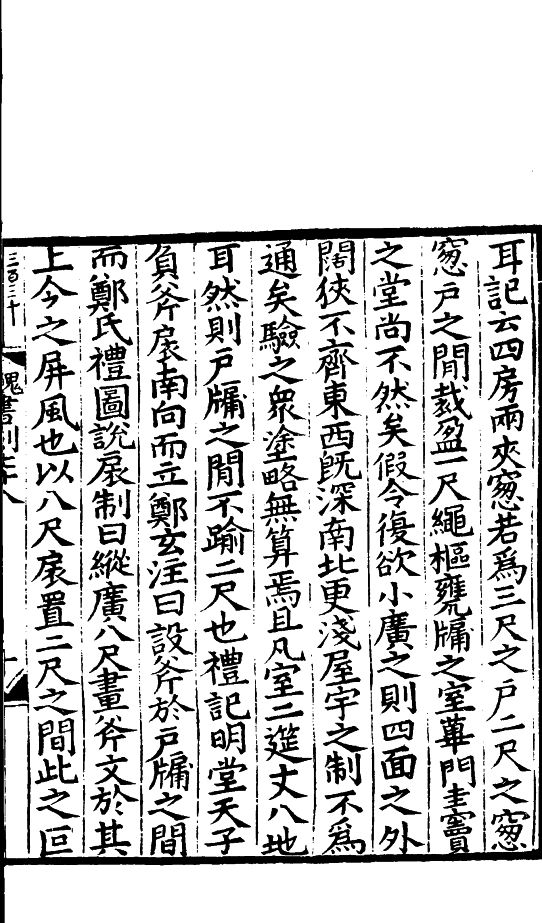 耳記云四房兩夾窻若爲三尺之戶二尺之窻
窻戶之閒裁盈一尺繩樞甕牖之室蓽門圭竇
之堂尚不然矣假令復欲小廣之則四面之外
闊狹不齊東西旣深南北更淺屋宇之制不爲
通矣驗之衆塗略無算焉且凡室二筵丈八地
耳然則戶牖之閒不踰二尺也禮記明堂天子
負斧扆南向而立鄭玄注曰設斧於戶牖之間
而鄭氏禮圖說扆制曰縱廣八尺畫斧文於其
上今之屏風也以八尺扆置二尺之間此之叵
三百三十
魏書列七十八